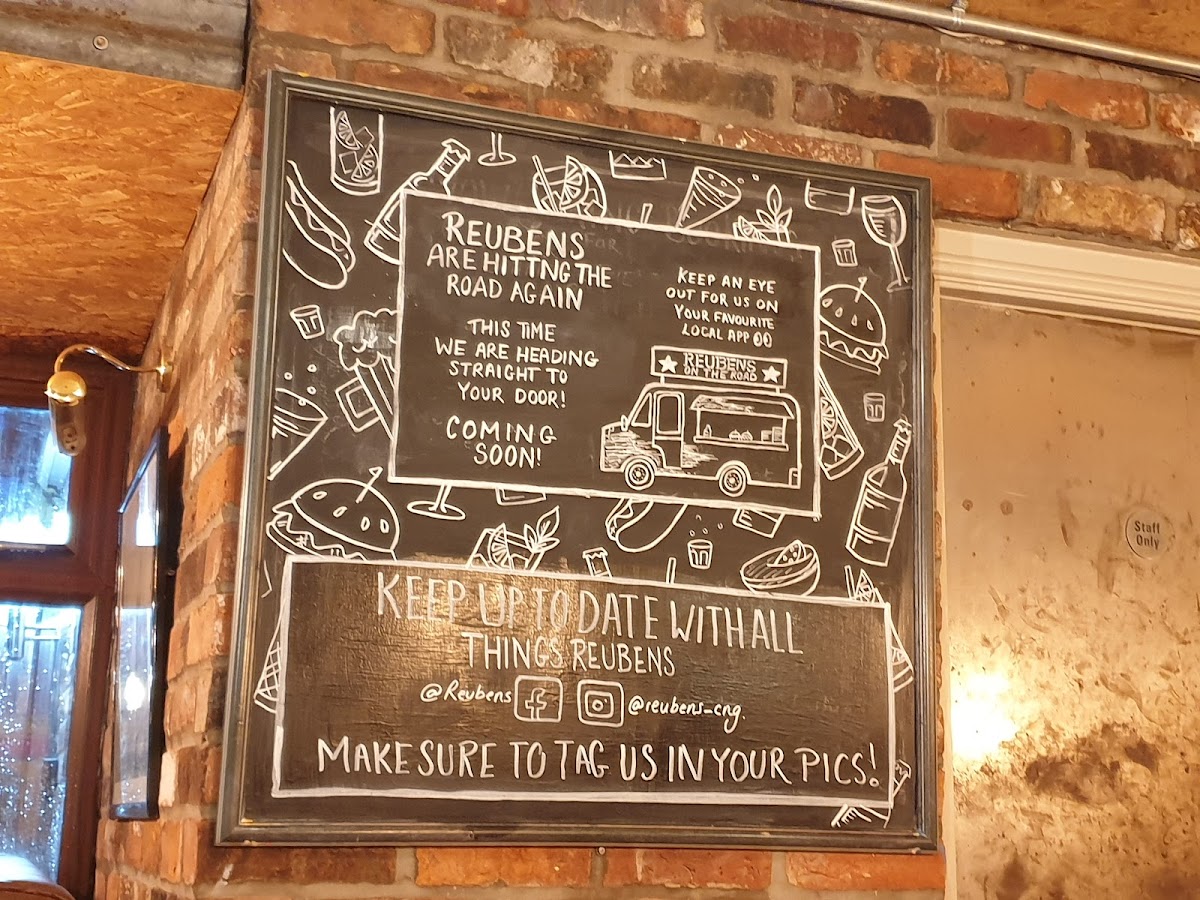 REUBENS
ARE HITTNG THE
ROAD AGAIN
THIS TIME
WE ARE HEADING
STRAIGHT TO
YOUR DOOR!
COMING
SOON!
KEEP AN EYE
OUT FOR US ON
YOUR FAVOURITE
LOCAL APP
REUBENS
ON THE ROAD
KEEP UP TO DATE WITH ALL
THINGS REUBENS
@Reubens f @reubens_cng.
MAKE SURE TO TAG US IN YOUR PICS!
Staff
Only